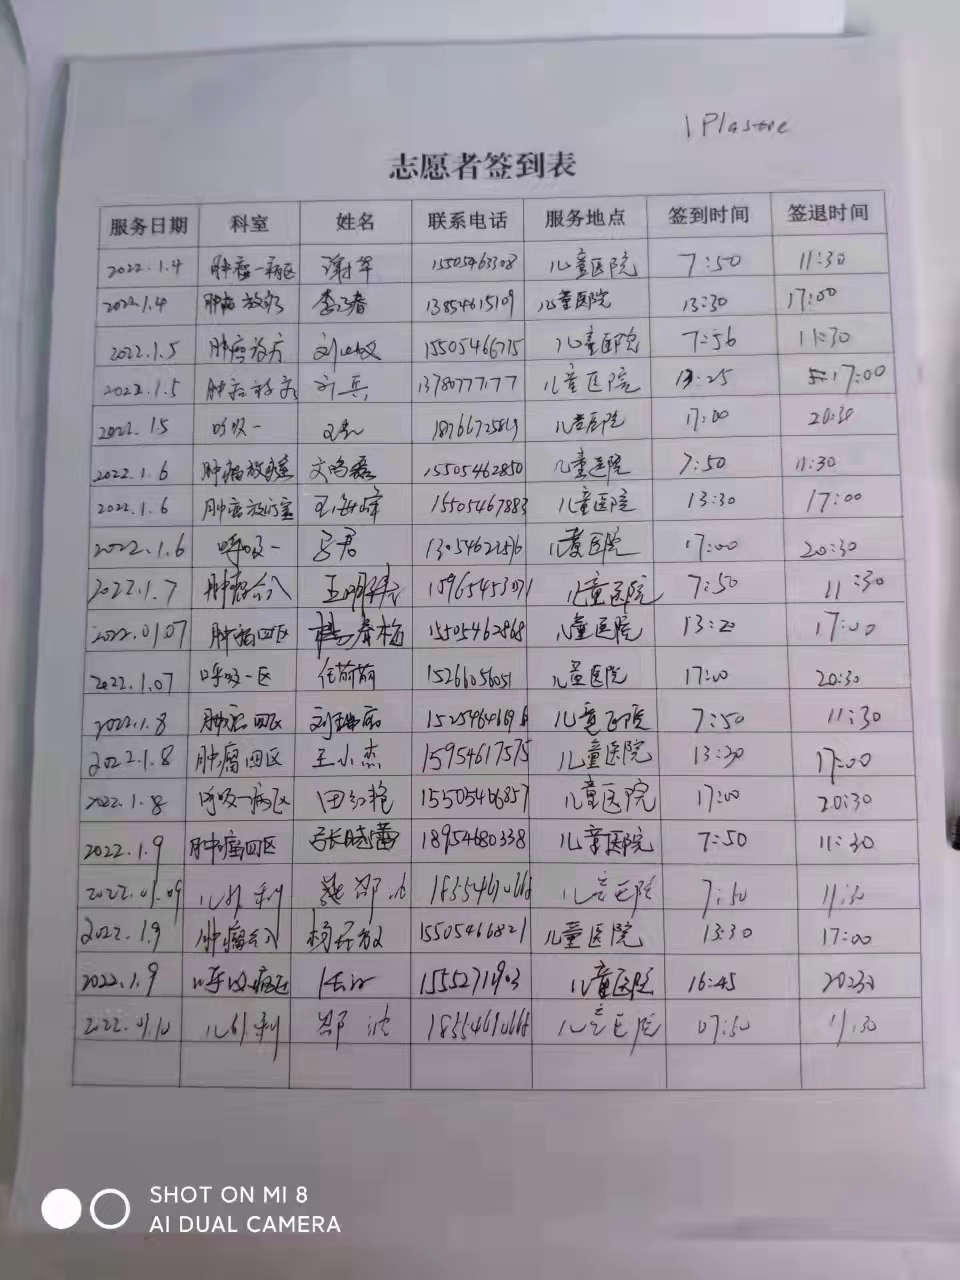 志愿者签到表
服务日期 科室 姓名 联系电话 服务地点 签到时间 签退时间
2022.1.4 肿瘤一病区 谢军 15505463308 儿童医院 7:50 11:30
2022.1.4 肿瘤 13854615109 儿童医院 13:30 17:00
2022.1.5 肿瘤放疗 15505466715 儿童医院 7:56 11:30
2022.1.5 肿瘤 13780777177 儿童医院 13:25 17:00
2022.1.5 呼吸一 儿童医院 17:00 20:30
2022.1.6 肿瘤放疗室 15505462850 儿童医院 7:50 11:30
2022.1.6 肿瘤放疗室 王海峰 15505467883 儿童医院 13:30 17:00
2022.1.6 呼吸一 儿童医院 17:00 20:30
2022.1.7 肿瘤介入 儿童医院 7:50 11:30
2022.01.07 肿瘤四区 杨春梅 15505462868 儿童医院 13:20 17:00
2022.1.07 呼吸一区 任前前 15266056051 儿童医院 17:00 20:30
2022.1.8 肿瘤四区 儿童医院 7:50 11:30
2022.1.8 肿瘤四区 王小杰 15954617575 儿童医院 13:30 17:00
2022.1.8 呼吸一病区 田红艳 15505466857 儿童医院 17:00 20:30
2022.1.9 肿瘤四区 张晓蕾 18954680338 儿童医院 7:50 11:30
2022.01.09 儿外科 邵波 儿童医院 7:50 11:30
2022.1.9 肿瘤介入 15505466821 儿童医院 13:30 17:00
2022.1.9 呼吸病区 15552711903 儿童医院 16:45 2030
2022.01.10 儿外科 邵波 儿童医院 07:50 11:30
SHOT ON MI 8
AI DUAL CAMERA